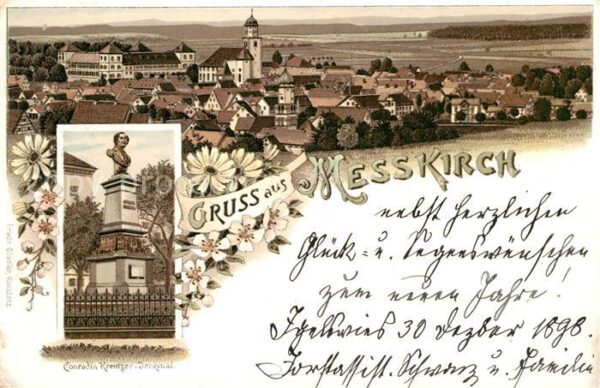 GRUSS aus MESSKIRCH
nebst herzlichen
Glück- u. Segenswünschen
zum neuen Jahre!
Igelswies 30 Dezber 1898.
Forstassist. Schwarz u. Familie
Conradin Kreutzer-Denkmal.